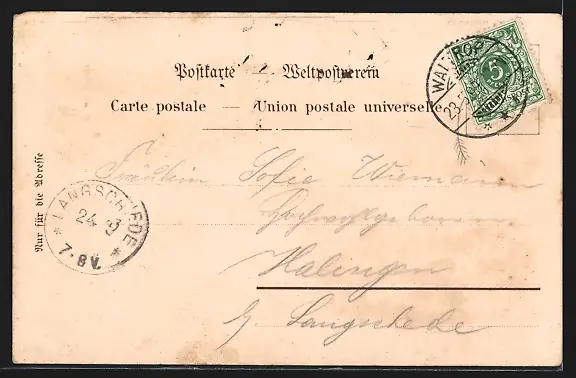 Postkarte — Weltpostverein
Carte postale — Union postale universelle
Nur für die Adresse
WALTROP
23
5
LANGSCHEDE
24 3
7-8V.
Fräulein Sofie Wiemann
Hochwohlgeboren
Halingen
b/ Langschede